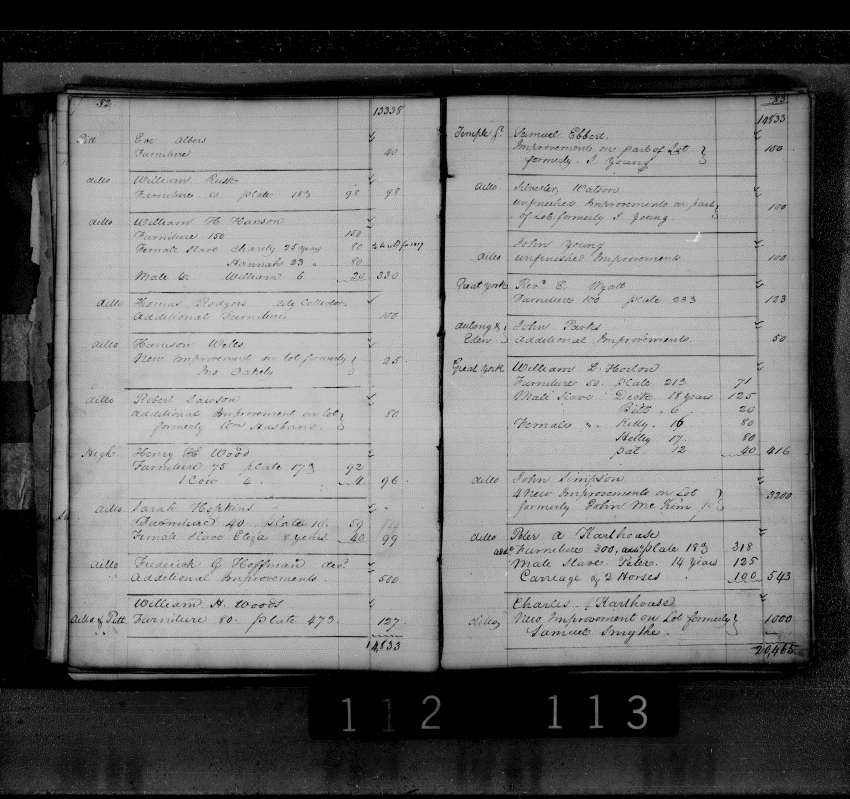 82
13338
Pitt Eve Albers "
Furniture 40
ditto William Rusk "
Furniture & plate 183 98 98
ditto William H. Hanson "
Furniture 150 150
Female Slave Charity 25 years 80
Hannah 23 " 80
Male do William 6 20 330
ditto Thomas Rodgers City Collector "
Additional Furniture 100
ditto Harrison Wells "
New Improvement on lot formerly
Jno Oakels 25
ditto Robert Lawson "
additional Improvement on lot 80
formerly Wm Husband
High Henry H Wood "
Furniture 75 plate 173 92
1 Cow 4 4 96
ditto Sarah Hopkins "
Furniture 40 plate 19 59
Female Slave Eliza 8 years 40 99
ditto Frederick G Hoffman "
Additional Improvements 500
William H. Woods "
ditto & Pitt Furniture 80. plate 473. 127
14833
83
14833
Temple St. Samuel Ebbert. "
Improvements on part of Lot 100
formerly J Young
ditto Watson "
unfinished Improvements on part 100
of Lot formerly J Young.
John Young "
ditto unfinished Improvements 100
Great York Revd. E. Wyatt "
Furniture 100 plate 233 123
& John Parks "
Eden Additional Improvements. 50
Great York William L. Horton "
Furniture 50. plate 213 71
Male Slave 18 years 125
Bill " 6 20
Female " Kitty 16 80
17. 80
12 40 416
ditto John Simpson "
4 New Improvements on Lot 3200
formerly John McKim, Jr
ditto Peter A Karthouse "
Furniture 300, plate 183 318
Male Slave Peter 14 years 125
Carriage & 2 Horses 100 543
Charles Karthouse "
ditto New Improvement on Lot formerly 1000
Samuel Smythe.
20,465
112 113